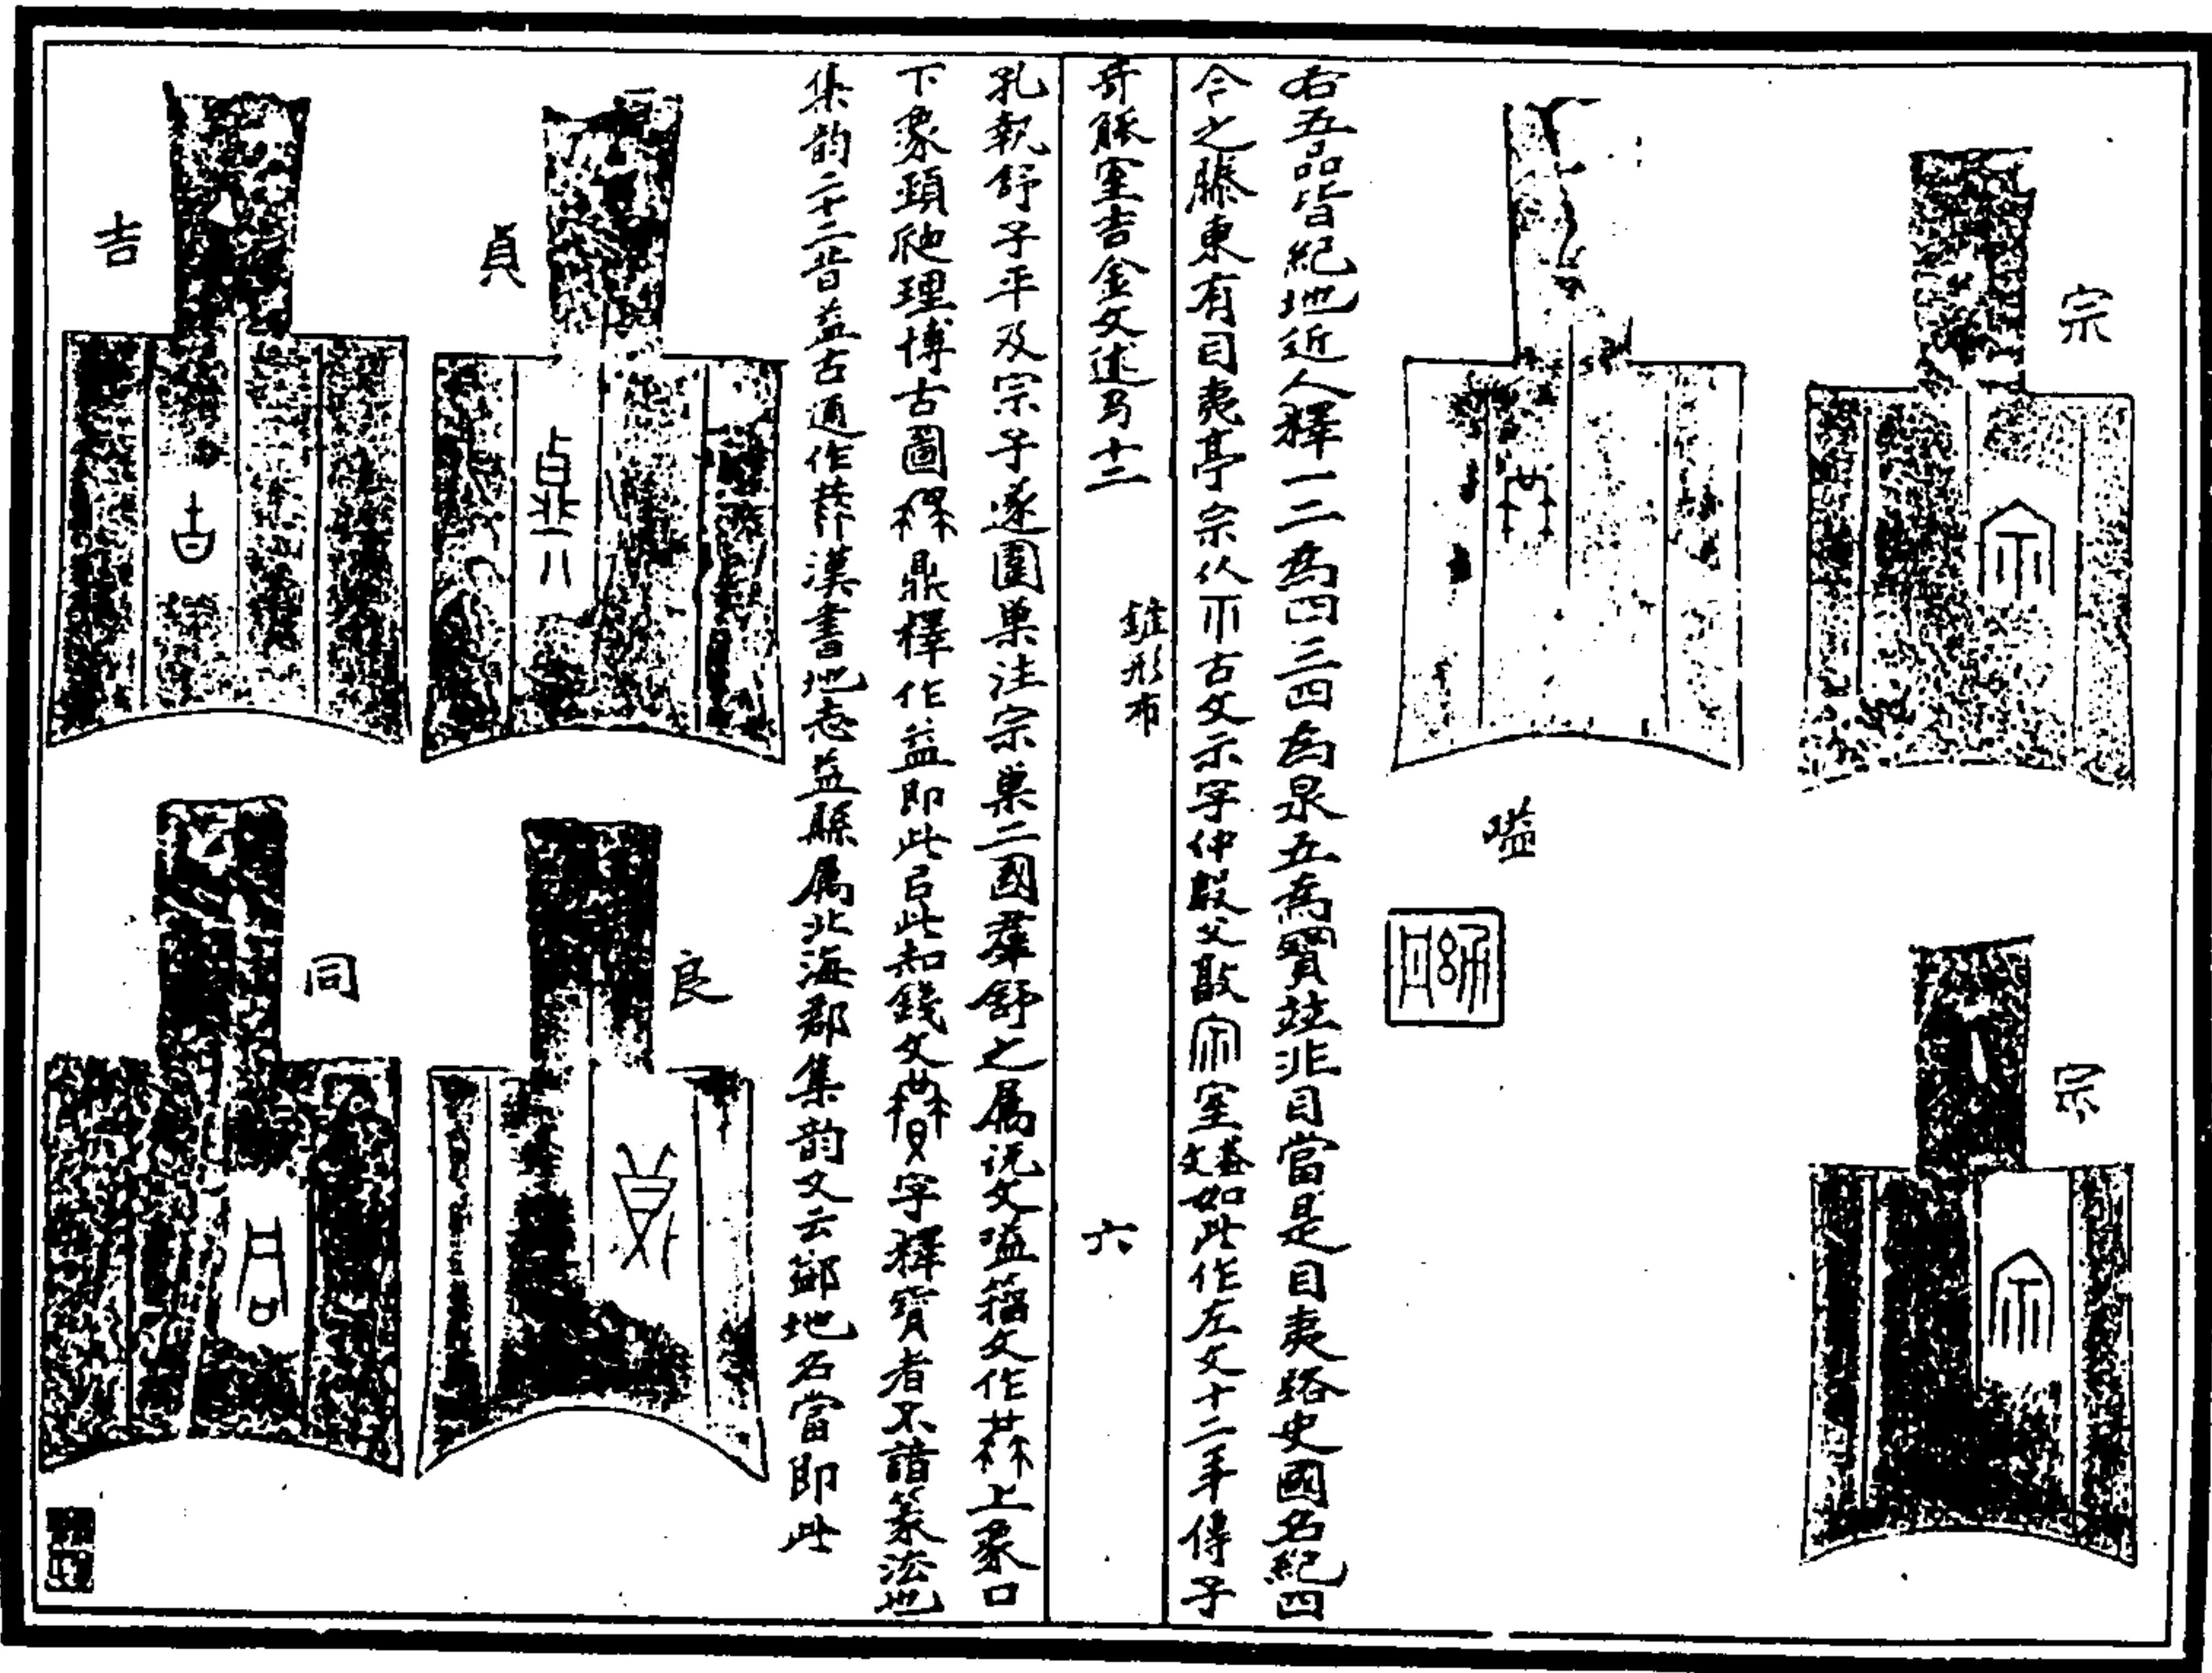 宗
宗
嗌
右五品皆紀地近人釋一二為四三四為泉五為寶竝非目當是目夷路史國名紀四
今之滕東有目夷亭宗从不古文示字仲殷父敦室蓋文如此作左文十二年傳子
奇觚室吉金文述弓十二
錐形布
六
孔執舒子平及宗子遂圍巢注宗巢二國羣舒之屬說文嗌籀文作上象口
下象頸脈理博古圖鼎釋作益即此㠯此知錢文字釋寶者不諳篆法也
集韵二十二昔益古通作漢書地志益縣屬北海郡集韵又云䣤地名當即此
貞
良
吉
同